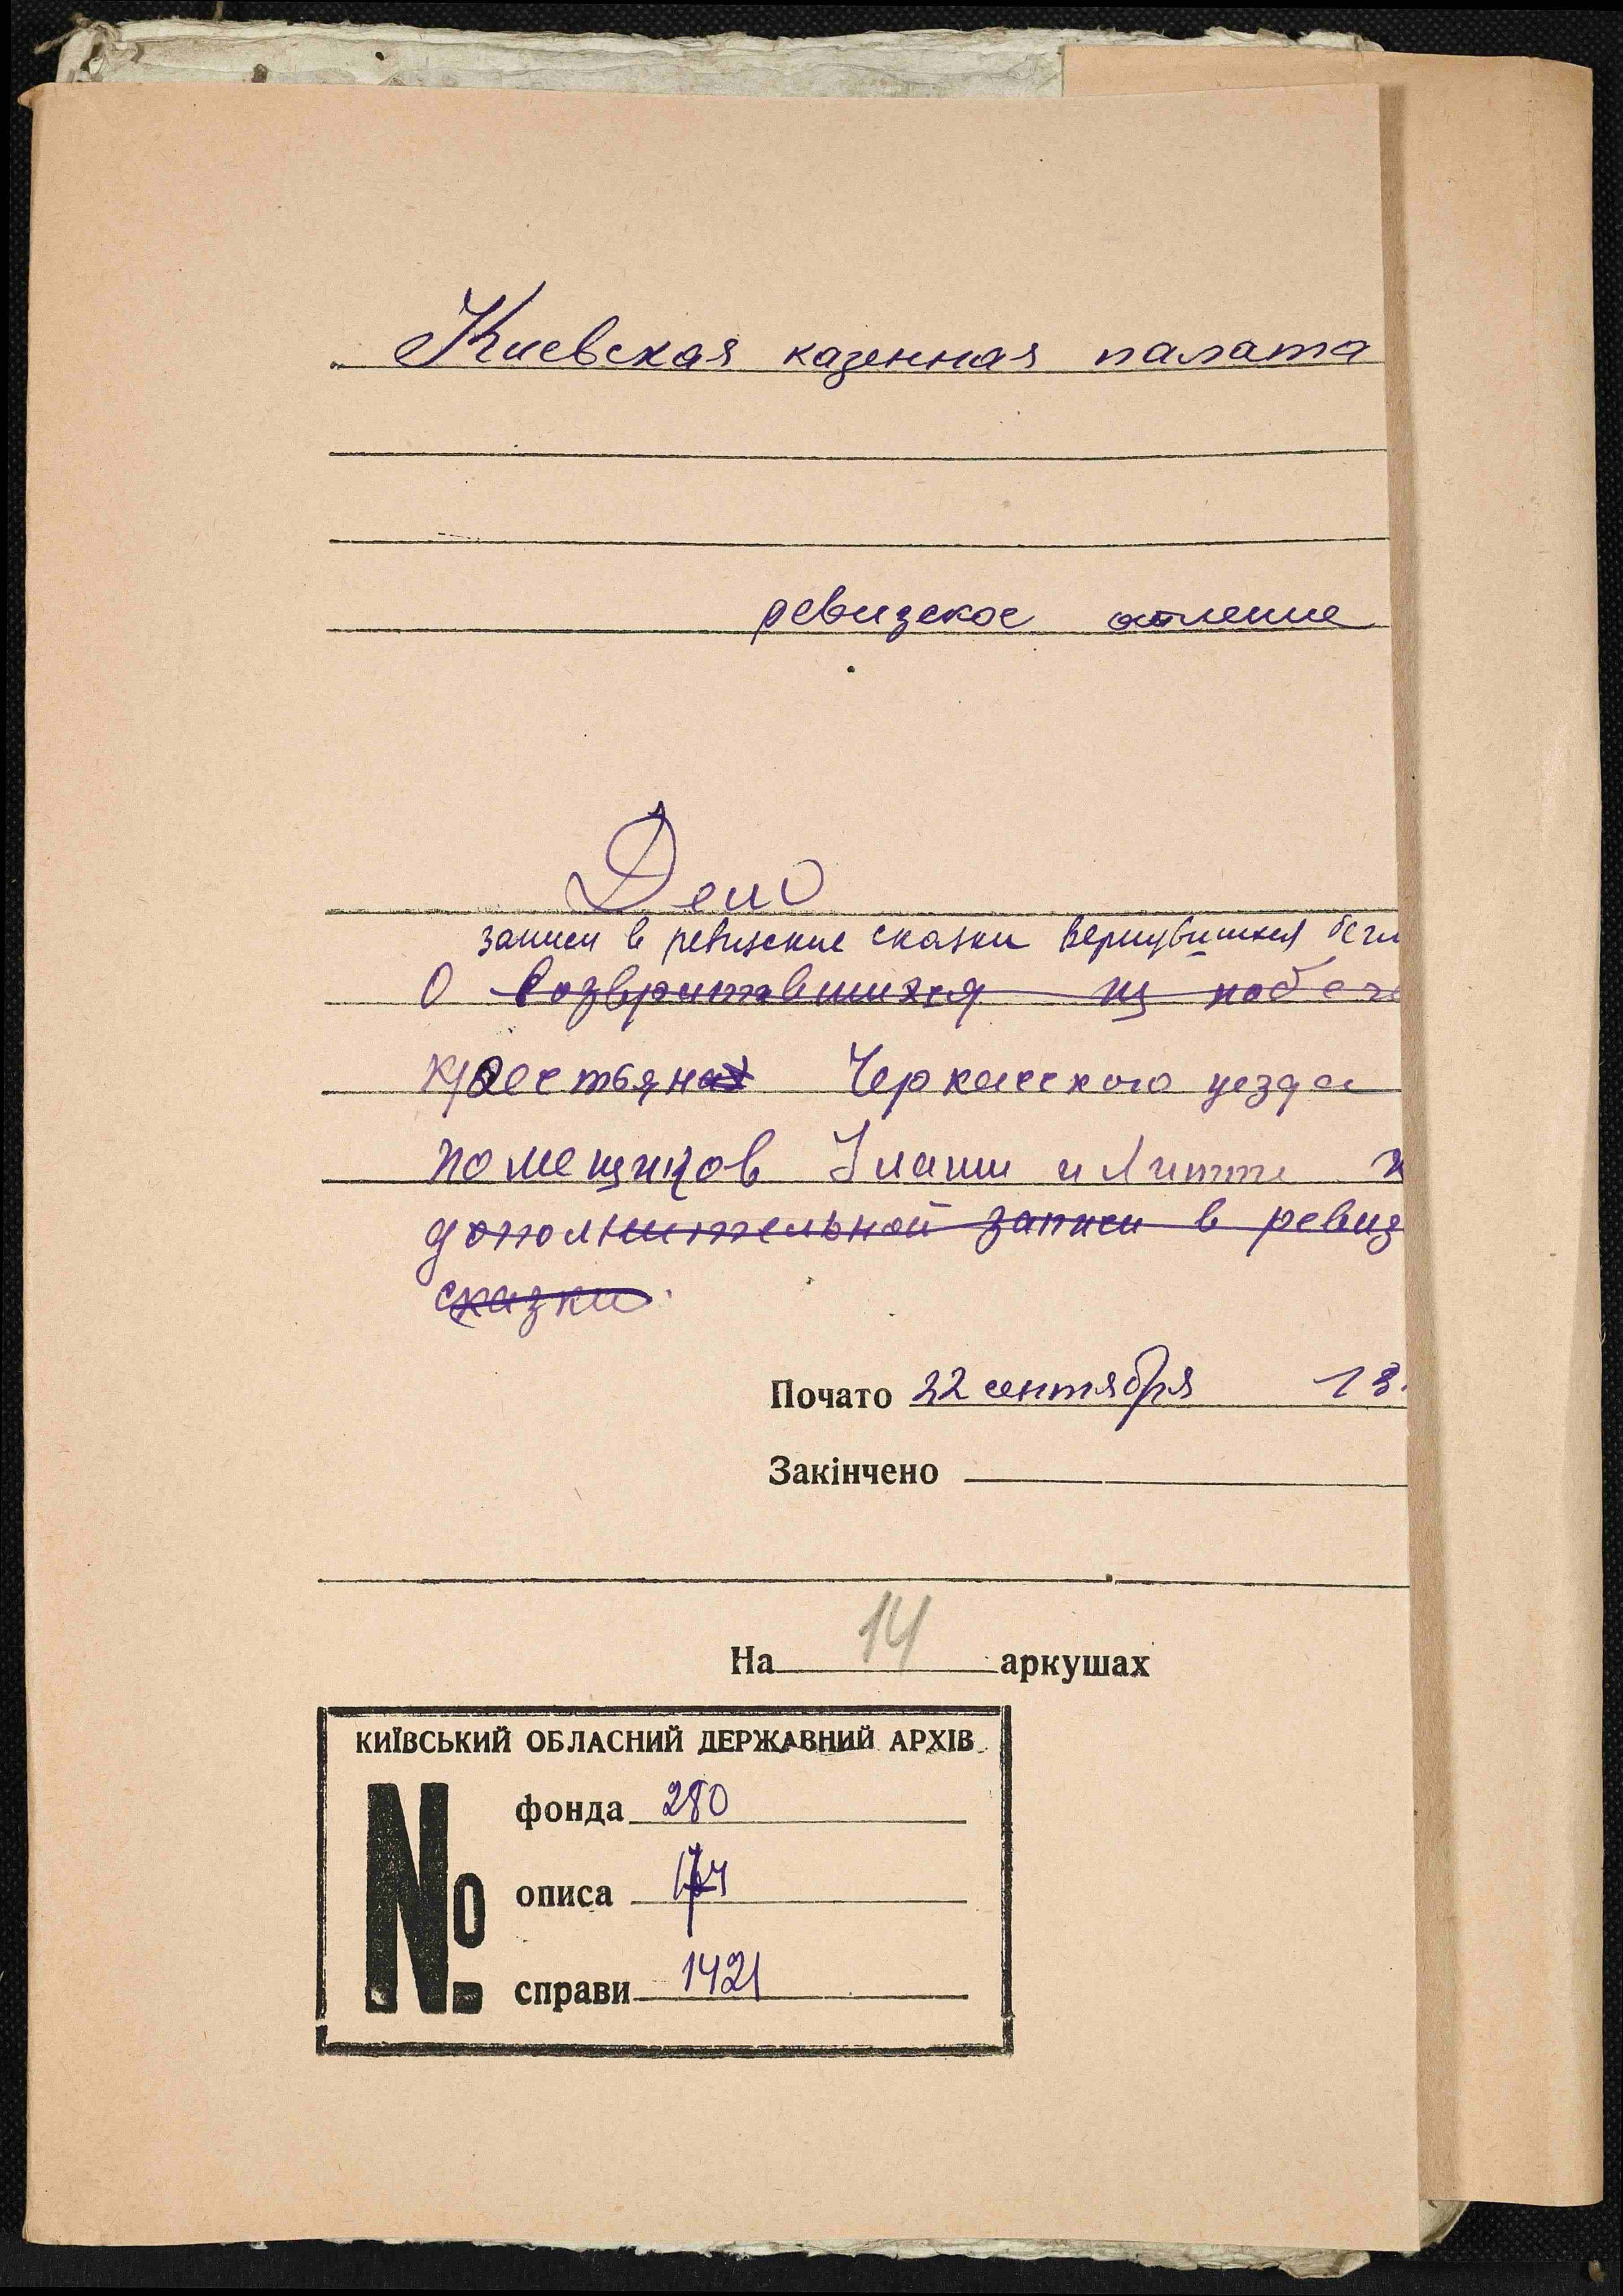 Киевская казенная палата
ревизское отление
Дело
записи в ревизские сказки вернувшихся бегл
О возвратившихся из побега
крестьянах Черкасского уезда
помещиков и Литте
дополнительной записи в ревиз
сказки.
Почато 22 сентября 18
Закінчено
На 14 аркушах
КИЇВСЬКИЙ ОБЛАСНИЙ ДЕРЖАВНИЙ АРХІВ
№
фонда 280
описа 174
справи 1421